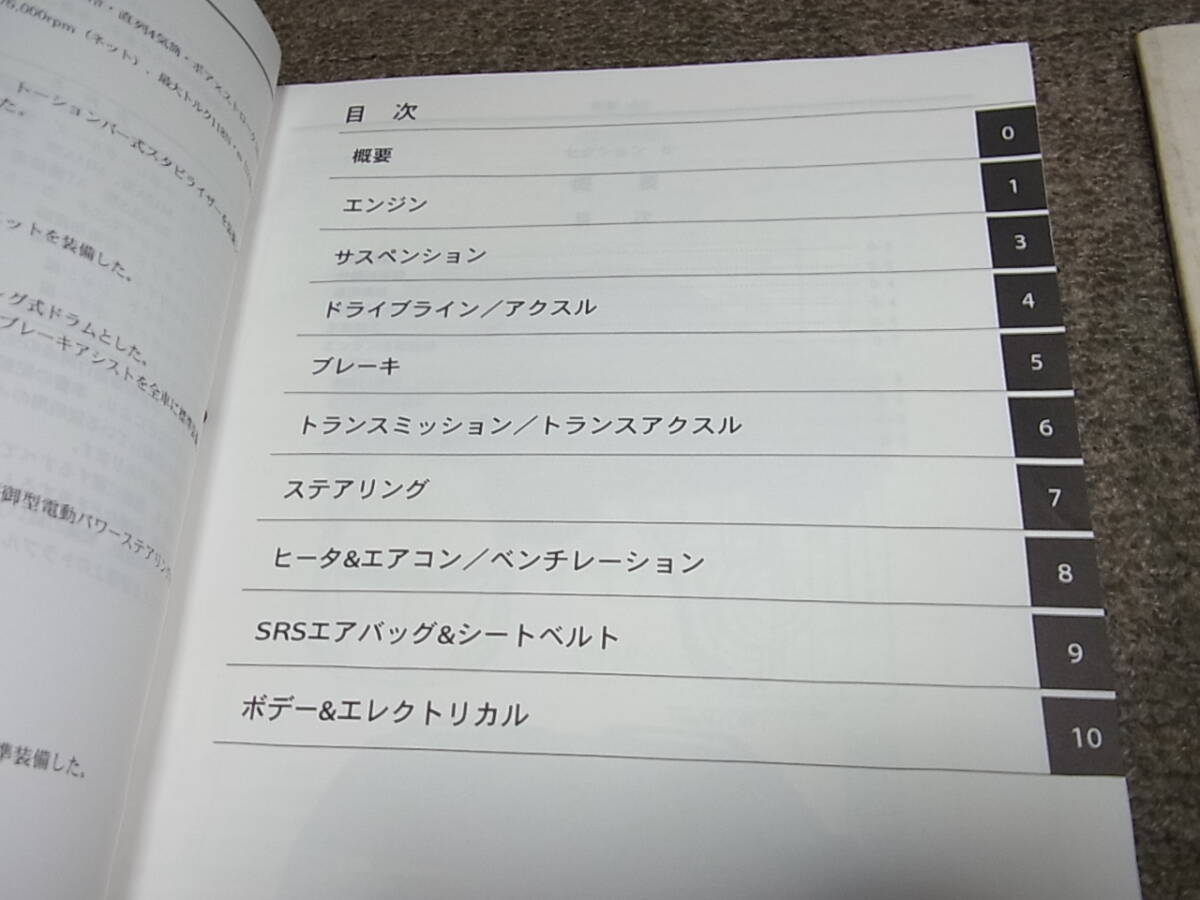 ・直列4気筒・
6,000rpm（ネット）、最大トルク118N・m
トーションバー式スタビライザーを装
た。
ットを装備した。
グ式ドラムとした。
ブレーキアシストを全車に標準
御型電動パワーステアリング
準装備した。
目 次
概要 0
エンジン 1
サスペンション 3
ドライブライン／アクスル 4
ブレーキ 5
トランスミッション／トランスアクスル 6
ステアリング 7
ヒータ&エアコン／ベンチレーション 8
SRSエアバッグ&シートベルト 9
ボデー&エレクトリカル 10